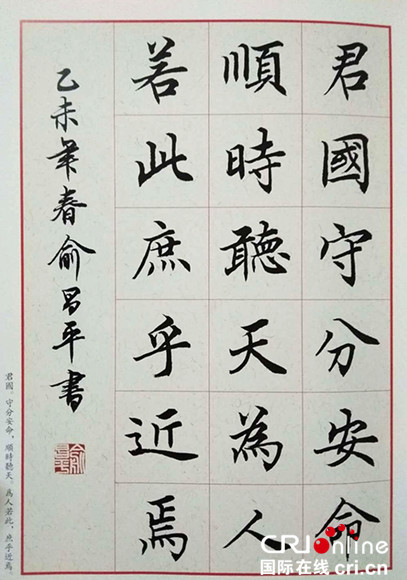 君國守分安命
順時聽天為人
若此庶乎近焉
乙未年春俞昌平書
君國。守分安命，順時聽天。為人若此，庶乎近焉
CRIonline
国际在线.cri.cn